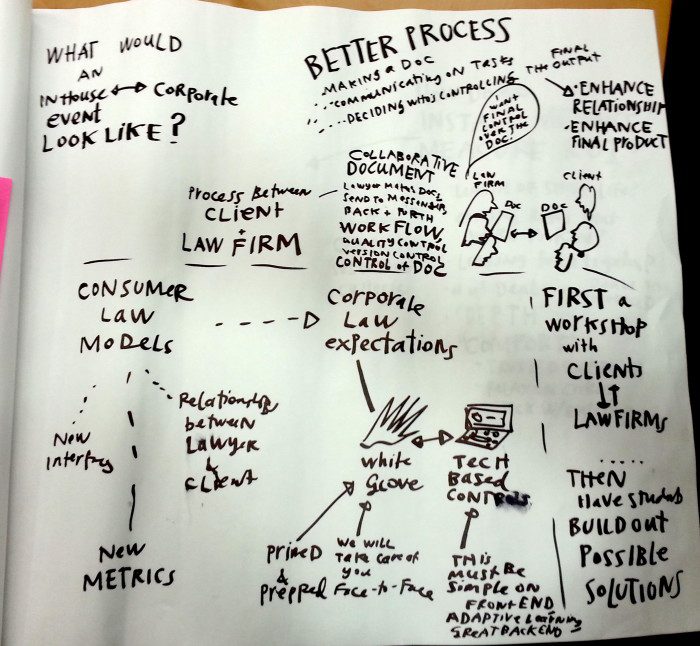 WHAT WOULD
AN
INHOUSE ↔ CORPORATE
EVENT
LOOK LIKE?
BETTER PROCESS
MAKING A DOC
....COMMUNICATING ON TASKS
....DECIDING WHO'S CONTROLLING
FINAL
THE OUTPUT
• ENHANCE
RELATIONSHIP
• ENHANCE
FINAL PRODUCT
I
WANT
FINAL
CONTROL
OVER THE
DOC!
PROCESS BETWEEN
CLIENT
+
LAW FIRM
COLLABORATIVE
DOCUMENT
LAWYER MAKES DOCS
SEND TO MESSENGERS
BACK + FORTH
WORKFLOW
QUALITY CONTROL
VERSION CONTROL
CONTROL of DOC
LAW
FIRM
CLIENT
DOC
DOC
CONSUMER
LAW
MODELS
New
Interfaces
Relationship
between
LAWYER
&
CLIENT
NEW
METRICS
CORPORATE
LAW
expectations
White
Glove
TECH
BASED
CONTROLS
PRIMED
&
Prepped
We will
Take care of
you
Face-to-Face
THIS
MUST BE
SIMPLE ON
FRONT END
ADAPTIVE Learning
GREAT BACK END
FIRST a
WORKSHOP
with
CLIENTS
LAWFIRMS
......
THEN
Have students
BUILD OUT
POSSIBLE
SOLUTIONS